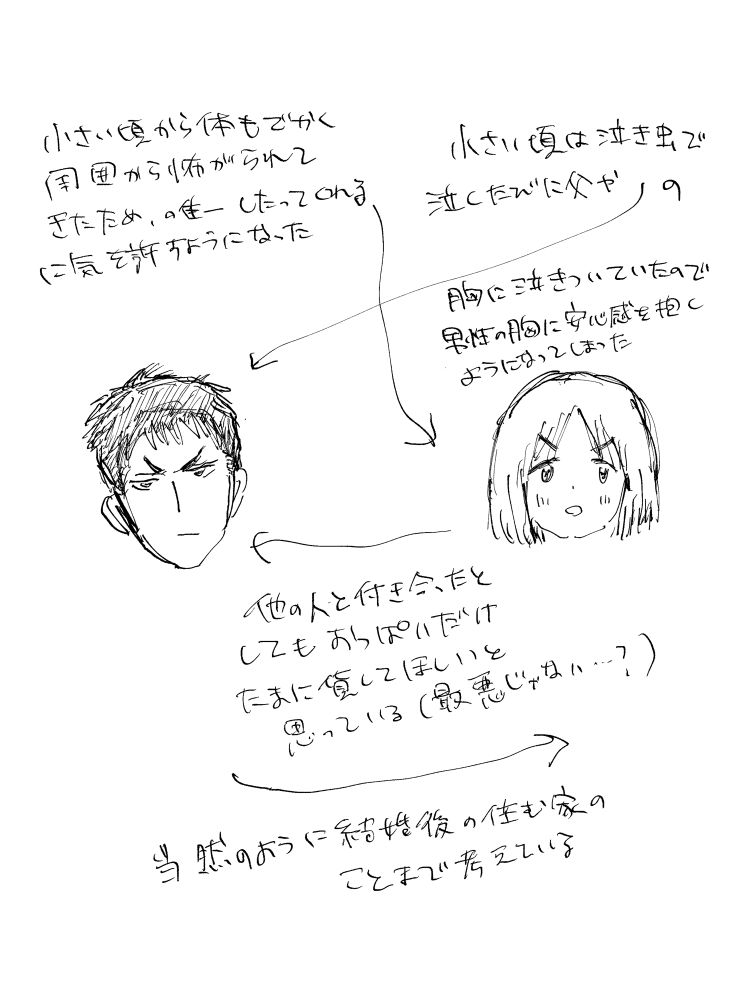 小さい頃から体もでかく
周囲から怖がられて
きたため、唯一したってくれる
に気を許すようになった
小さい頃は泣き虫で
泣くたびに父や の
胸に泣きついていたので
男性の胸に安心感を抱く
ようになってしまった
他の人と付き合ったと
してもおっぱいだけ
たまに貸してほしいと
思っている(最悪じゃない…?)
当然のように結婚後の住む家の
ことまで考えている